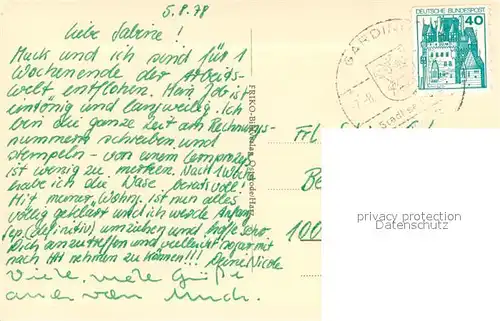 5.8.78
Liebe Sabine!
Muck und ich sind für 1
Wochenende der Arbeits-
welt entflohen. Mein Job ist
eintönig und langweilig. Ich
bin die ganze Zeit am Rechnungs-
nummern schreiben und
stempeln - von einem Lernprozeß
ist wenig zu merken. Nach 1 Woche
habe ich die Nase bereits voll!
Mit meiner Wohng. ist nun alles
völlig geklärt und ich werde Anfang
Sep. (definitiv) umziehen und hoffe sehr
Dich anzutreffen und vielleicht sogar mit
nach HH nehmen zu können!!! Deine Nicole
Viele, viele Grüße
auch von Muck.
DEUTSCHE BUNDESPOST
40
GARDING
Frl
Be
100
privacy protection
Datenschutz